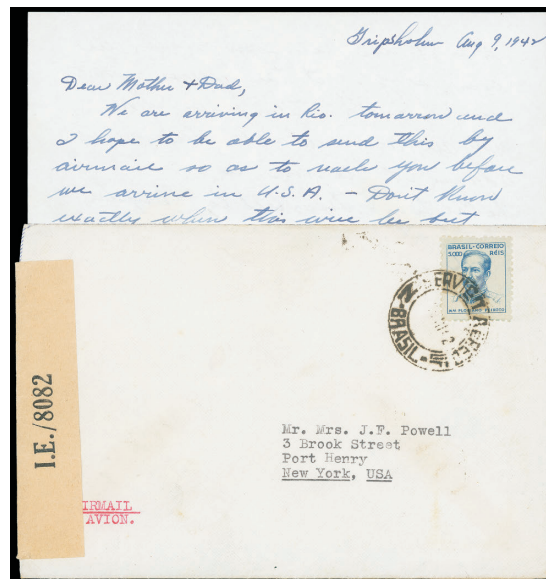 Gripsholm Aug 9, 1942
Dear Mother + Dad,
We are arriving in Rio. tomorrow and
I hope to be able to send this by
airmail so as to reach you before
we arrive in U.S.A. – Don't know
exactly when this will be but
BRASIL-CORREIO
5.000 RÉIS
BRASIL
I.E./8082
Mr. Mrs. J.F. Powell
3 Brook Street
Port Henry
New York, USA
IRMAIL
AVION.